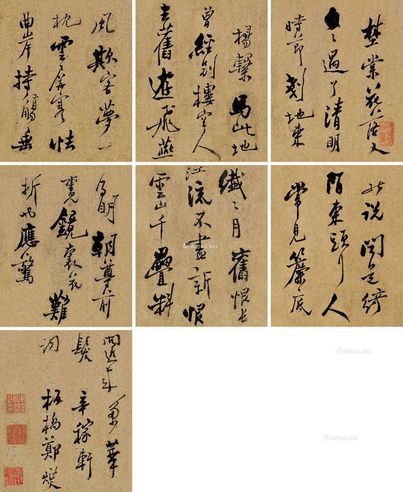 野棠花落又
匆匆過了清明
時節剗地東
風欺客夢一
枕雲屏寒怯
曲岸持觴垂
楊繫馬此地
曾經別樓空人
去舊遊飛燕
能說聞道綺
陌東頭行人
常見簾底
纖纖月舊恨長
江流不盡新恨
雲山千疊料
得明朝尊前
重見鏡裏花難
折也應驚
問近來多華
髮 辛稼軒
詞 板橋鄭燮